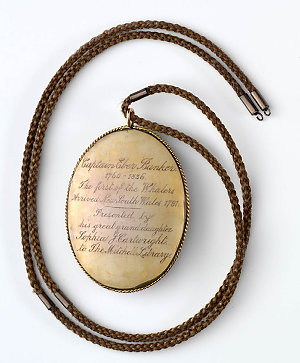 Captain Eber Bunker
1762 - 1836.
The first of the Whalers
Arrived New South Wales 1791.
Presented by
his great grand daughter
Sophia J. Cartwright,
to The Mitchell Library.